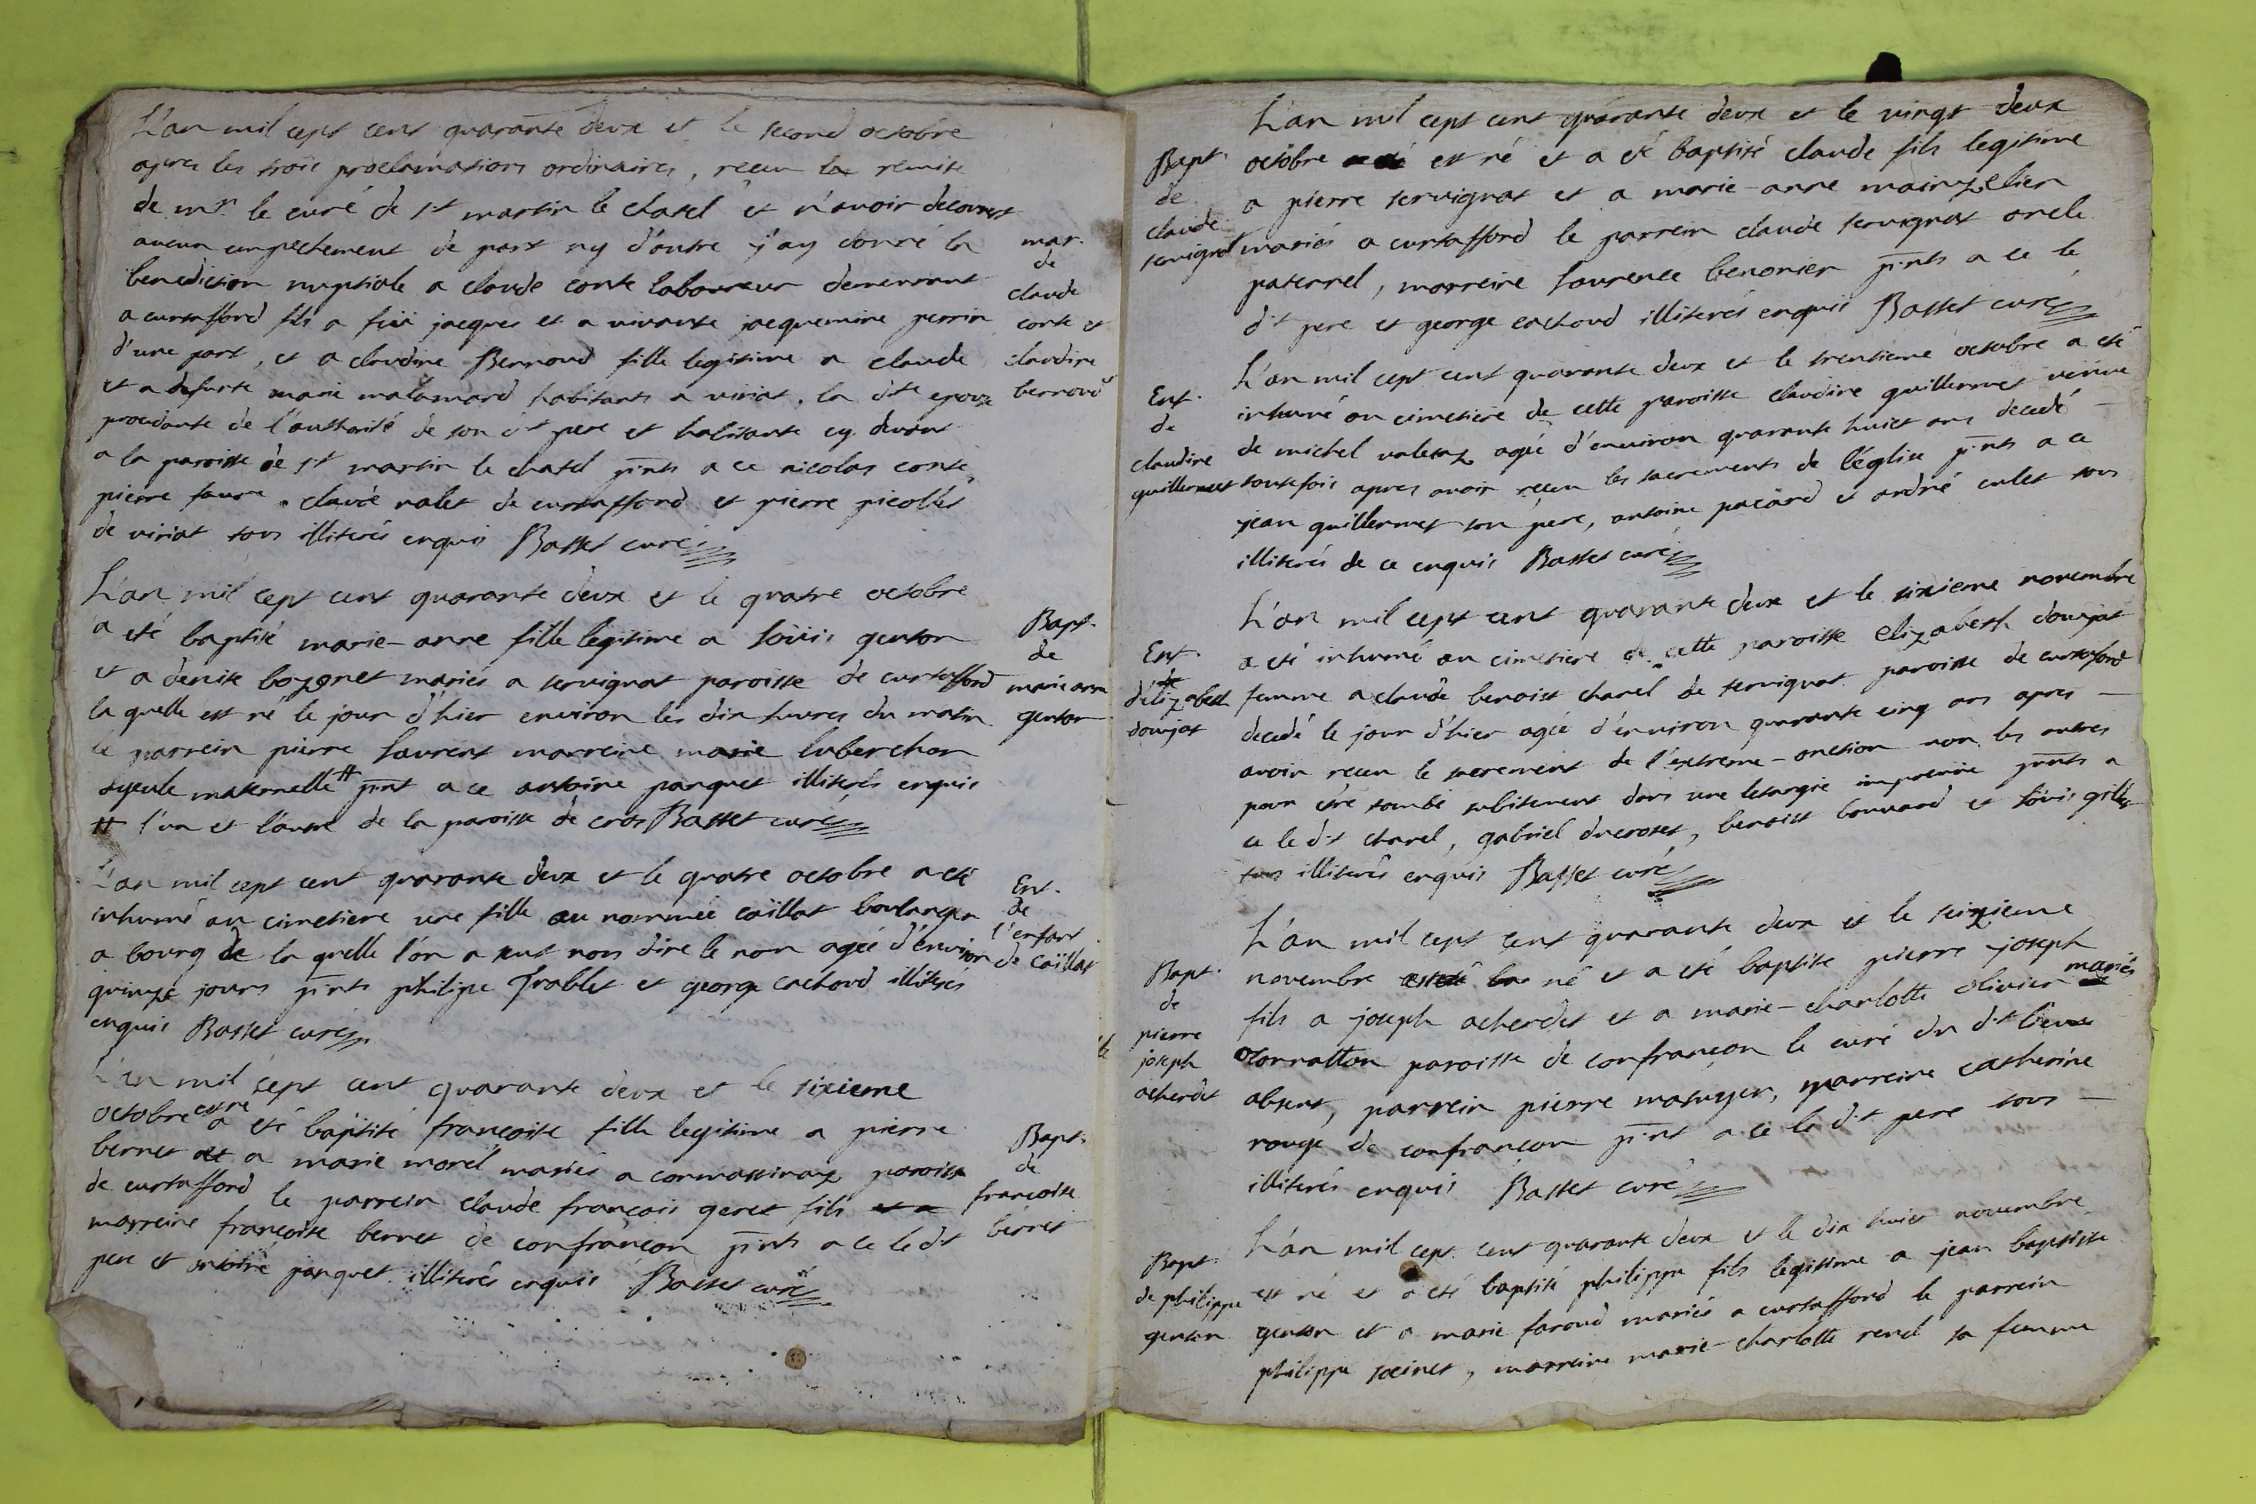 L'an mil cept cent quarante deux et le second octobre
apres les trois proclamations ordinaires, receu la remise
de mr. le curé de st martin le chatel et n'avoir decouvert
aucun empechement de part ny d'autre j'ay donné la
benediction nuptiale a claude conte laboureur demeurant
a curtafford fils a fûû jacques et a vivante jacquemine perrin
d'une part, et a claudine Bernoud fille legitime a claude
et a defunte marie malamard habitants a viriat. la dte epouse
procedante de l'authorité de son dt pere et habitante cy devant
a la paroisse de st martin le chatel pnts a ce nicolas conte,
pierre faure claude valet de curtafford et pierre picollet
de viriat tous illiterés enquis Basset curé
mar.
de
claude
conte et
claudine
bernoud
L'an mil cept cent quarante deux et le quatre octobre
a eté baptisé marie-anne fille legitime a loüis genton
et a denise bozonet mariés a servignat paroisse de curtafford
la quelle est né le jour d'hier environ les dix heures du matin
le parrein pierre laurent marreine marie luberchon
ayeule maternelle # pnt a ce antoine panquet illiterés enquis
# l'un et l'autre de la paroisse de cras Basset curé
Bapt.
de
marie anne
genton
L'an mil cept cent quarante deux et le quatre octobre a eté
inhumé au cimetiere une fille au nommée caïllat boulanger
a bourg de la quelle l'on a sçut nous dire le nom agée d'environ
quinze jours pnts philipe Frablet et george cachoud illiterés
enquis Basset curé
Ent.
de
l'enfant
de caïllat
L'an mil sept cent quarante deux et le sixieme
octobre est né a eté baptisé françoise fille legitime a pierre
bernet et a marie morel mariés a cormassinaz paroisse
de curtafford le parrein claude françois geret fils et a
marreine françoise bernet de confrançon pnts a ce le dt
pere et antoine panquet illiterés enquis Basset curé
Bapt.
de
françoise
bernet
L'an mil cept cent quarante deux et le vingt deux
octobre est né et a eté baptisé claude fils legitime
a pierre servignat et a marie-anne mainzelier
mariés a curtafford le parrein claude servignat oncle
paternel, marreine laurence benonier pnts a ce le
dt pere et george cachoud illiterés enquis Basset curé
Bapt.
de
claude
servignat
L'an mil cept cent quarante deux et le trentieme octobre a eté
inhumé au cimetiere de cette paroisse claudine guillermet veüve
de michel valetaz agée d'environ quarante huict ans decedé
toutefois apres avoir receu les sacrements de l'église pnts a ce
jean guillermet son pere, antoine pacard et andré culet tous
illiterés de ce enquis Basset curé
Ent.
de
claudine
guillermet
L'an mil cept cent quarante deux et le sixieme novembre
a eté inhumé au cimetiere de cette paroisse elizabeth doujat
femme a claude benoist charel de servignat paroisse de curtafford
decedé le jour d'hier agée d'environ quarante cinq ans apres
avoir receu le sacrement de l'extreme-onction non les autres
pour étre tombé subitement dans une letargie impreviie pnts a
ce le dt charel, gabriel ducroset, benoist bouvard et loüis
tous illiterés enquis Basset curé
Ent.
de
d'elizabeth
doujat
L'an mil cept cent quarante deux et le seizieme
novembre né et a eté baptisé pierre joseph
fils a joseph acherdet et a marie-charlotte olivier mariés
cornatton paroisse de confrançon le curé du dt lieux
absent, parrein pierre masuyer, marreine catherine
rouge de confrançon pnt a ce le dt pere tous
illiterés enquis Basset curé
Bapt.
de
pierre
joseph
acherdet
L'an mil cept cent quarante deux et le dix huict novembre
est né et a eté baptisé philippe fils legitime a jean baptiste
genton et a marie faroud mariés a curtafford le parrein
philippe, marreine marie-charlotte renel sa femme
Bapt.
de philippe
genton